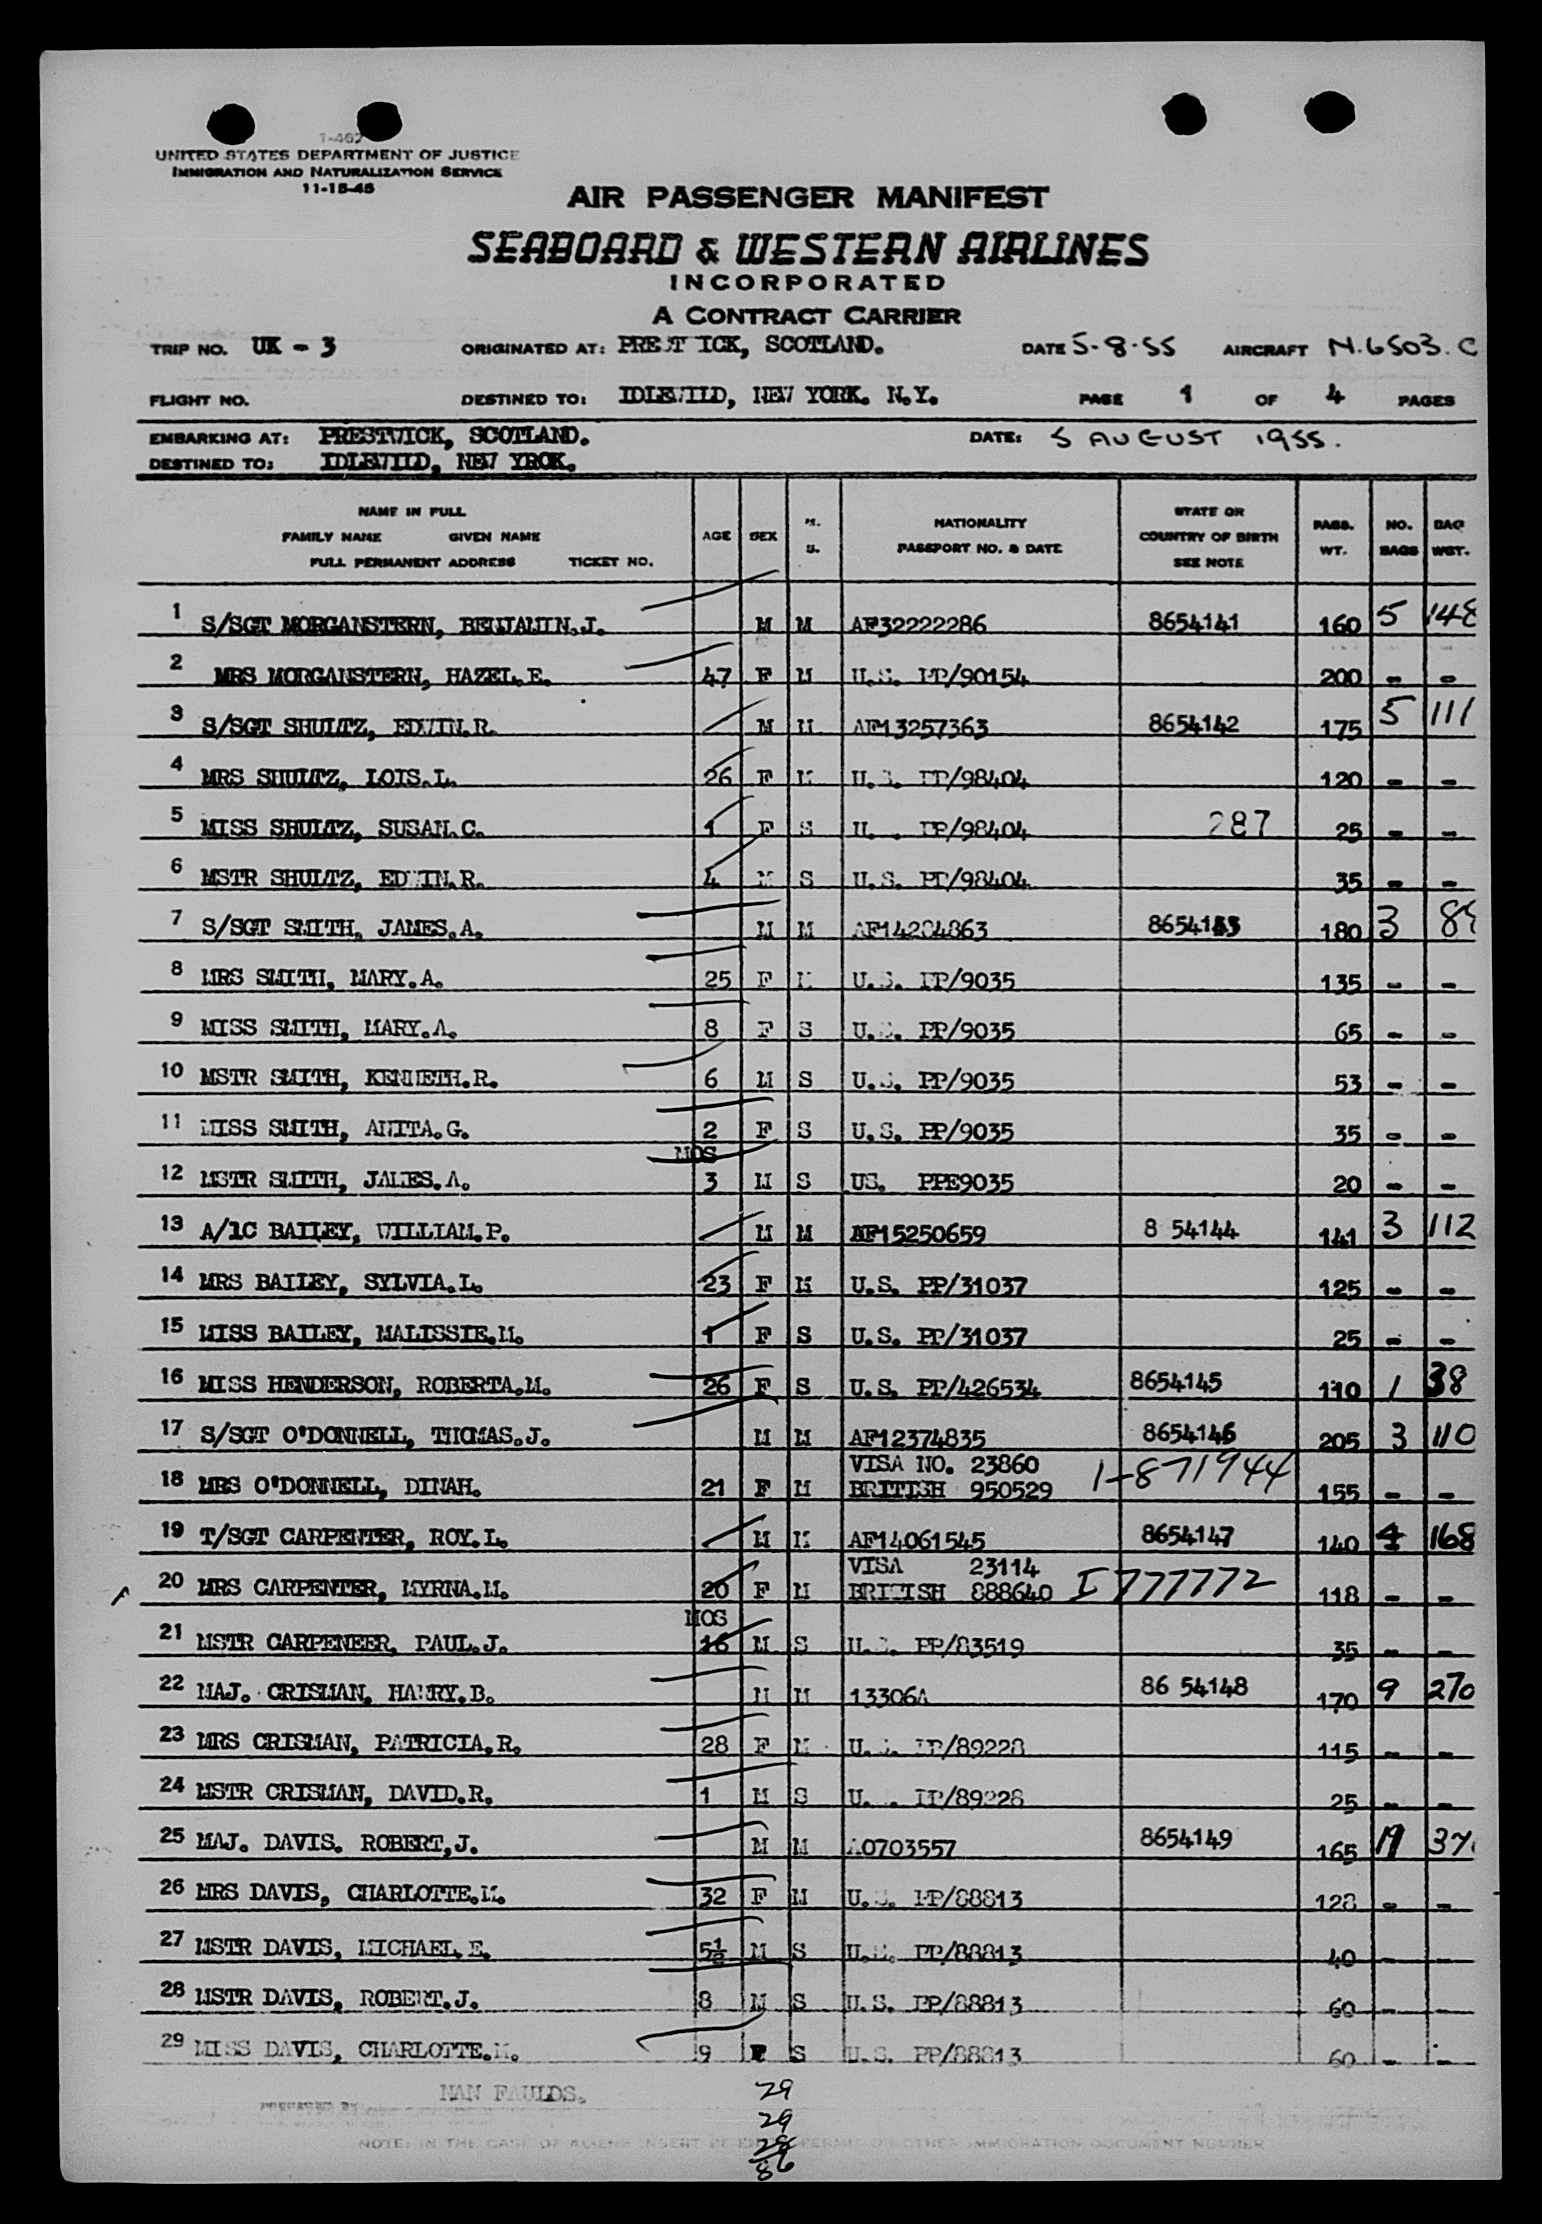 UNITED STATES DEPARTMENT OF JUSTICE
IMMIGRATION AND NATURALIZATION SERVICE
11-15-45
AIR PASSENGER MANIFEST
SEABOARD & WESTERN AIRLINES
INCORPORATED
A CONTRACT CARRIER
TRIP NO. UK - 3 ORIGINATED AT: PREST ICK, SCOTLAND. DATE 5-8-55 AIRCRAFT N.6503.C
FLIGHT NO. DESTINED TO: IDLEWILD, NEW YORK. N.Y. PAGE 1 OF 4 PAGES
EMBARKING AT: PRESTWICK, SCOTLAND. DATE: 5 AUGUST 1955.
DESTINED TO: IDLEWILD, NEW YROK.
NAME IN FULL
FAMILY NAME GIVEN NAME
FULL PERMANENT ADDRESS TICKET NO.
AGE SEX M. S.
NATIONALITY
PASSPORT NO. & DATE
STATE OR
COUNTRY OF BIRTH
SEE NOTE
PASS. WT. NO. BAGS BAG WGT.
1 S/SGT MORGANSTERN, BENJAMIN.J. M M AF32222286 8654141 160 5 148
2 MRS MORGANSTERN, HAZEL.E. 47 F M U.S. PP/90154 200 - -
3 S/SGT SHULTZ, EDWIN.R. M M AF13257363 8654142 175 5 111
4 MRS SHULTZ, LOIS.L. 26 F M U.S. PP/98404 120 - -
5 MISS SHULTZ, SUSAN.C. 1 F S U. PP/98404 287 25 - -
6 MSTR SHULTZ, EDWIN.R. 4 M S U.S. PP/98404 35 - -
7 S/SGT SMITH, JAMES.A. M M AF14284863 8654143 180 3 89
8 MRS SMITH, MARY.A. 25 F M U.S. PP/9035 135 - -
9 MISS SMITH, MARY.A. 8 F S U.S. PP/9035 65 - -
10 MSTR SMITH, KENNETH.R. 6 M S U.S. PP/9035 53 - -
11 MISS SMITH, ANITA.G. 2 F S U.S. PP/9035 35 - -
MOS
12 MSTR SMITH, JAMES.A. 3 M S US. PPE9035 20 - -
13 A/1C BAILEY, WILLIAM.P. M M AF15250659 8 54144 141 3 112
14 MRS BAILEY, SYLVIA.L. 23 F M U.S. PP/31037 125 - -
15 MISS BAILEY, MALISSIE.M. 1 F S U.S. PP/31037 25 - -
16 MISS HENDERSON, ROBERTA.M. 26 F S U.S. PP/426534 8654145 110 1 38
17 S/SGT O'DONNELL, THOMAS.J. M M AF12374835 8654146 205 3 110
VISA NO. 23860
18 MRS O'DONNELL, DINAH. 21 F M BRITISH 950529 1-871944 155 - -
19 T/SGT CARPENTER, ROY.L. M M AF14061545 8654147 140 4 168
VISA 23114
20 MRS CARPENTER, MYRNA.M. 20 F M BRITISH 888640 I 777772 118 - -
MOS
21 MSTR CARPENEER, PAUL.J. 16 M S U.S. PP/83519 35 - -
22 MAJ. CRISMAN, HARRY.B. M M 13306A 86 54148 170 9 270
23 MRS CRISMAN, PATRICIA.R. 28 F M U.S. PP/89228 115 - -
24 MSTR CRISMAN, DAVID.R. 1 M S U. PP/89228 25 - -
25 MAJ. DAVIS. ROBERT,J. M M A0703557 8654149 165 19 37
26 MRS DAVIS, CHARLOTTE.M. 32 F M U.S. PP/88813 128 - -
27 MSTR DAVIS, MICHAEL.E. 5½ M S U.S. PP/88813 40 - -
28 MSTR DAVIS, ROBERT.J. 8 M S U.S. PP/88813 60 - -
29 MISS DAVIS, CHARLOTTE.M. 9 F S U.S. PP/88813 60 - -
NAN FAULDS.
PREPARED BY
29
29
28
86
NOTE: IN THE CASE OF ALIENS INSERT PERMIT OR OTHER IMMIGRATION DOCUMENT NUMBER